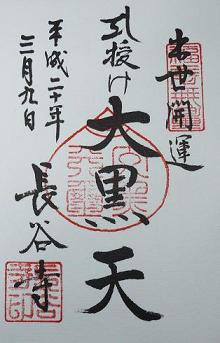 出世開運
引授け
大黒天
平成二十年
三月九日
長谷寺